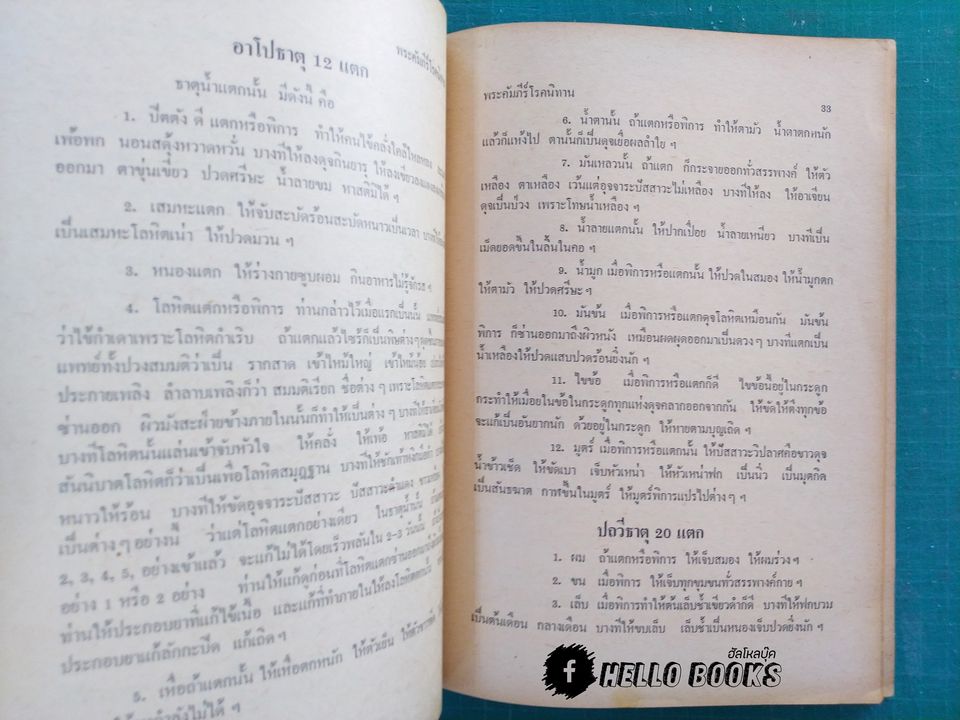 พระคัมภีร์โรคนิ
อาโปธาตุ 12 แตก
ธาตุน้ำแตกนั้น มีดังนี้ คือ
1. ปิตตัง ดี แตกหรือพิการ ทำให้คนไข้คลั่งไคล้ไหลหลง
เพ้อพก นอนสดุ้งหวาดหวั่น บางทีให้ลงดุจกินยารุ ให้ลงเขียว
ออกมา ตาขุ่นเขียว ปวดศรีษะ น้ำลายขม หาสติมิได้ ฯ
2. เสมหะแตก ให้จับสะบัดร้อนสะบัดหนาวเป็นเวลา
เป็นเสมหะโลหิตเน่า ให้ปวดมวน ฯ
3. หนองแตก ให้ร่างกายซูบผอม กินอาหารไม่รู้จักรส ฯ
4. โลหิตแตกหรือพิการ ท่านกล่าวไว้เมื่อแรกเป็นนั้น
ว่าไข้กำเดาเพราะโลหิตกำเริบ ถ้าแตกแล้วไซร้ก็เป็นพิษต่างๆ
แพทย์ทั้งปวงสมมติว่าเป็น รากสาด เข้าไหม้ใหญ่ เข้าไหม้น้อย
ประกายเพลิง ลำลาบเพลิงก็ว่า สมมติเรียก ชื่อต่าง ๆ เพราะโลหิต
ซ่านออก ผิวมังสะฝ่ายข้างภายในนั้นก็ทำให้เป็นต่าง ๆ
บางทีโลหิตนั้นแล่นเข้าจับหัวใจ ให้คลั่ง ให้เพ้อ หาสติมิได้
สันนิบาตโลหิตก็ว่าเป็นเพื่อโลหิตสมุฏฐาน บางทีให้ชักเท้า
หนาวให้ร้อน บางทีให้ขัดอุจจาระปัสสาวะ ปัสสาวะดำแดง
เป็นต่าง ๆ อย่างนี้ ว่าแต่โลหิตแตกอย่างเดียว ในธาตุน้ำนั้น
2, 3, 4, 5, อย่างเข้าแล้ว จะแก้ไม่ได้โดยเร็วพลันใน 2-3 วันนั้น
อย่าง 1 หรือ 2 อย่าง ท่านให้แก้ดูก่อนที่โลหิตแตกซ่านออกมา
ท่านให้ประกอบยาที่แก้ไข้เนื้อ และแก้ที่ทำภายในให้ลงโลหิต
ประกอบยาแก้ลักกะปิด แก้เถิด ฯ
5. เหื่อถ้าแตกนั้น ให้เหื่อตกหนัก ให้ตัวเย็น
กำลังไม่ได้ ฯ
พระคัมภีร์โรคนิทาน
33
6. น้ำตานั้น ถ้าแตกหรือพิการ ทำให้ตามัว น้ำตาตกหนัก
แล้วก็แห้งไป ตานั้นก็เป็นดุจเยื่อผลลำไย ฯ
7. มันเหลวนั้น ถ้าแตก ก็กระจายออกทั่วสรรพางค์ ให้ตัว
เหลือง ตาเหลือง เว้นแต่อุจจาระปัสสาวะไม่เหลือง บางทีให้ลง ให้อาเจียน
ดุจเป็นป่วง เพราะโทษน้ำเหลือง ฯ
8. น้ำลายแตกนั้น ให้ปากเปื่อย น้ำลายเหนียว บางทีเป็น
เม็ดยอดขึ้นในลิ้นในคอ ฯ
9. น้ำมูก เมื่อพิการหรือแตกนั้น ให้ปวดในสมอง ให้น้ำมูกตก
ให้ตามัว ให้ปวดศรีษะ ฯ
10. มันข้น เมื่อพิการหรือแตกดุจโลหิตเหมือนกัน มันข้น
พิการ ก็ซ่านออกมาถึงผิวหนัง เหมือนผดผุดออกมาเป็นดวงๆ บางทีแตกเป็น
น้ำเหลืองให้ปวดแสบปวดร้อนยิ่งนัก ฯ
11. ไขข้อ เมื่อพิการหรือแตกก็ดี ไขข้อนี้อยู่ในกระดูก
กระทำให้เมื่อยในข้อในกระดูกทุกแห่งดุจคลากออกจากกัน ให้ขัดให้ตึงทุกข้อ
จะแก้เป็นอันยากนัก ด้วยอยู่ในกระดูก ให้หายตามบุญเถิด ฯ
12. มูตร์ เมื่อพิการหรือแตกนั้น ให้ปัสสาวะวิปลาศคือขาวดุจ
น้ำข้าวเช็ด ให้ขัดเบา เจ็บหัวเหน่า ให้หัวเหน่าฟก เป็นนิ่ว เป็นมุตกิด
เป็นสันธฆาต กาฬขึ้นในมูตร์ ให้มูตร์พิการแปรไปต่างๆ ฯ
ปถวีธาตุ 20 แตก
1. ผม ถ้าแตกหรือพิการ ให้เจ็บสมอง ให้ผมร่วง ฯ
2. ขน เมื่อพิการ ให้เจ็บทุกขุมขนทั่วสรรพางค์กาย ฯ
3. เล็บ เมื่อพิการทำให้ต้นเล็บช้ำเขียวดำก็ดี บางทีให้ฟกบวม
เป็นต้นเดือน กลางเดือน บางทีให้ขบเล็บ เล็บช้ำเป็นหนองเจ็บปวดยิ่งนัก ฯ
ฮัลโหลบุ๊ค
f HELLO BOOKS